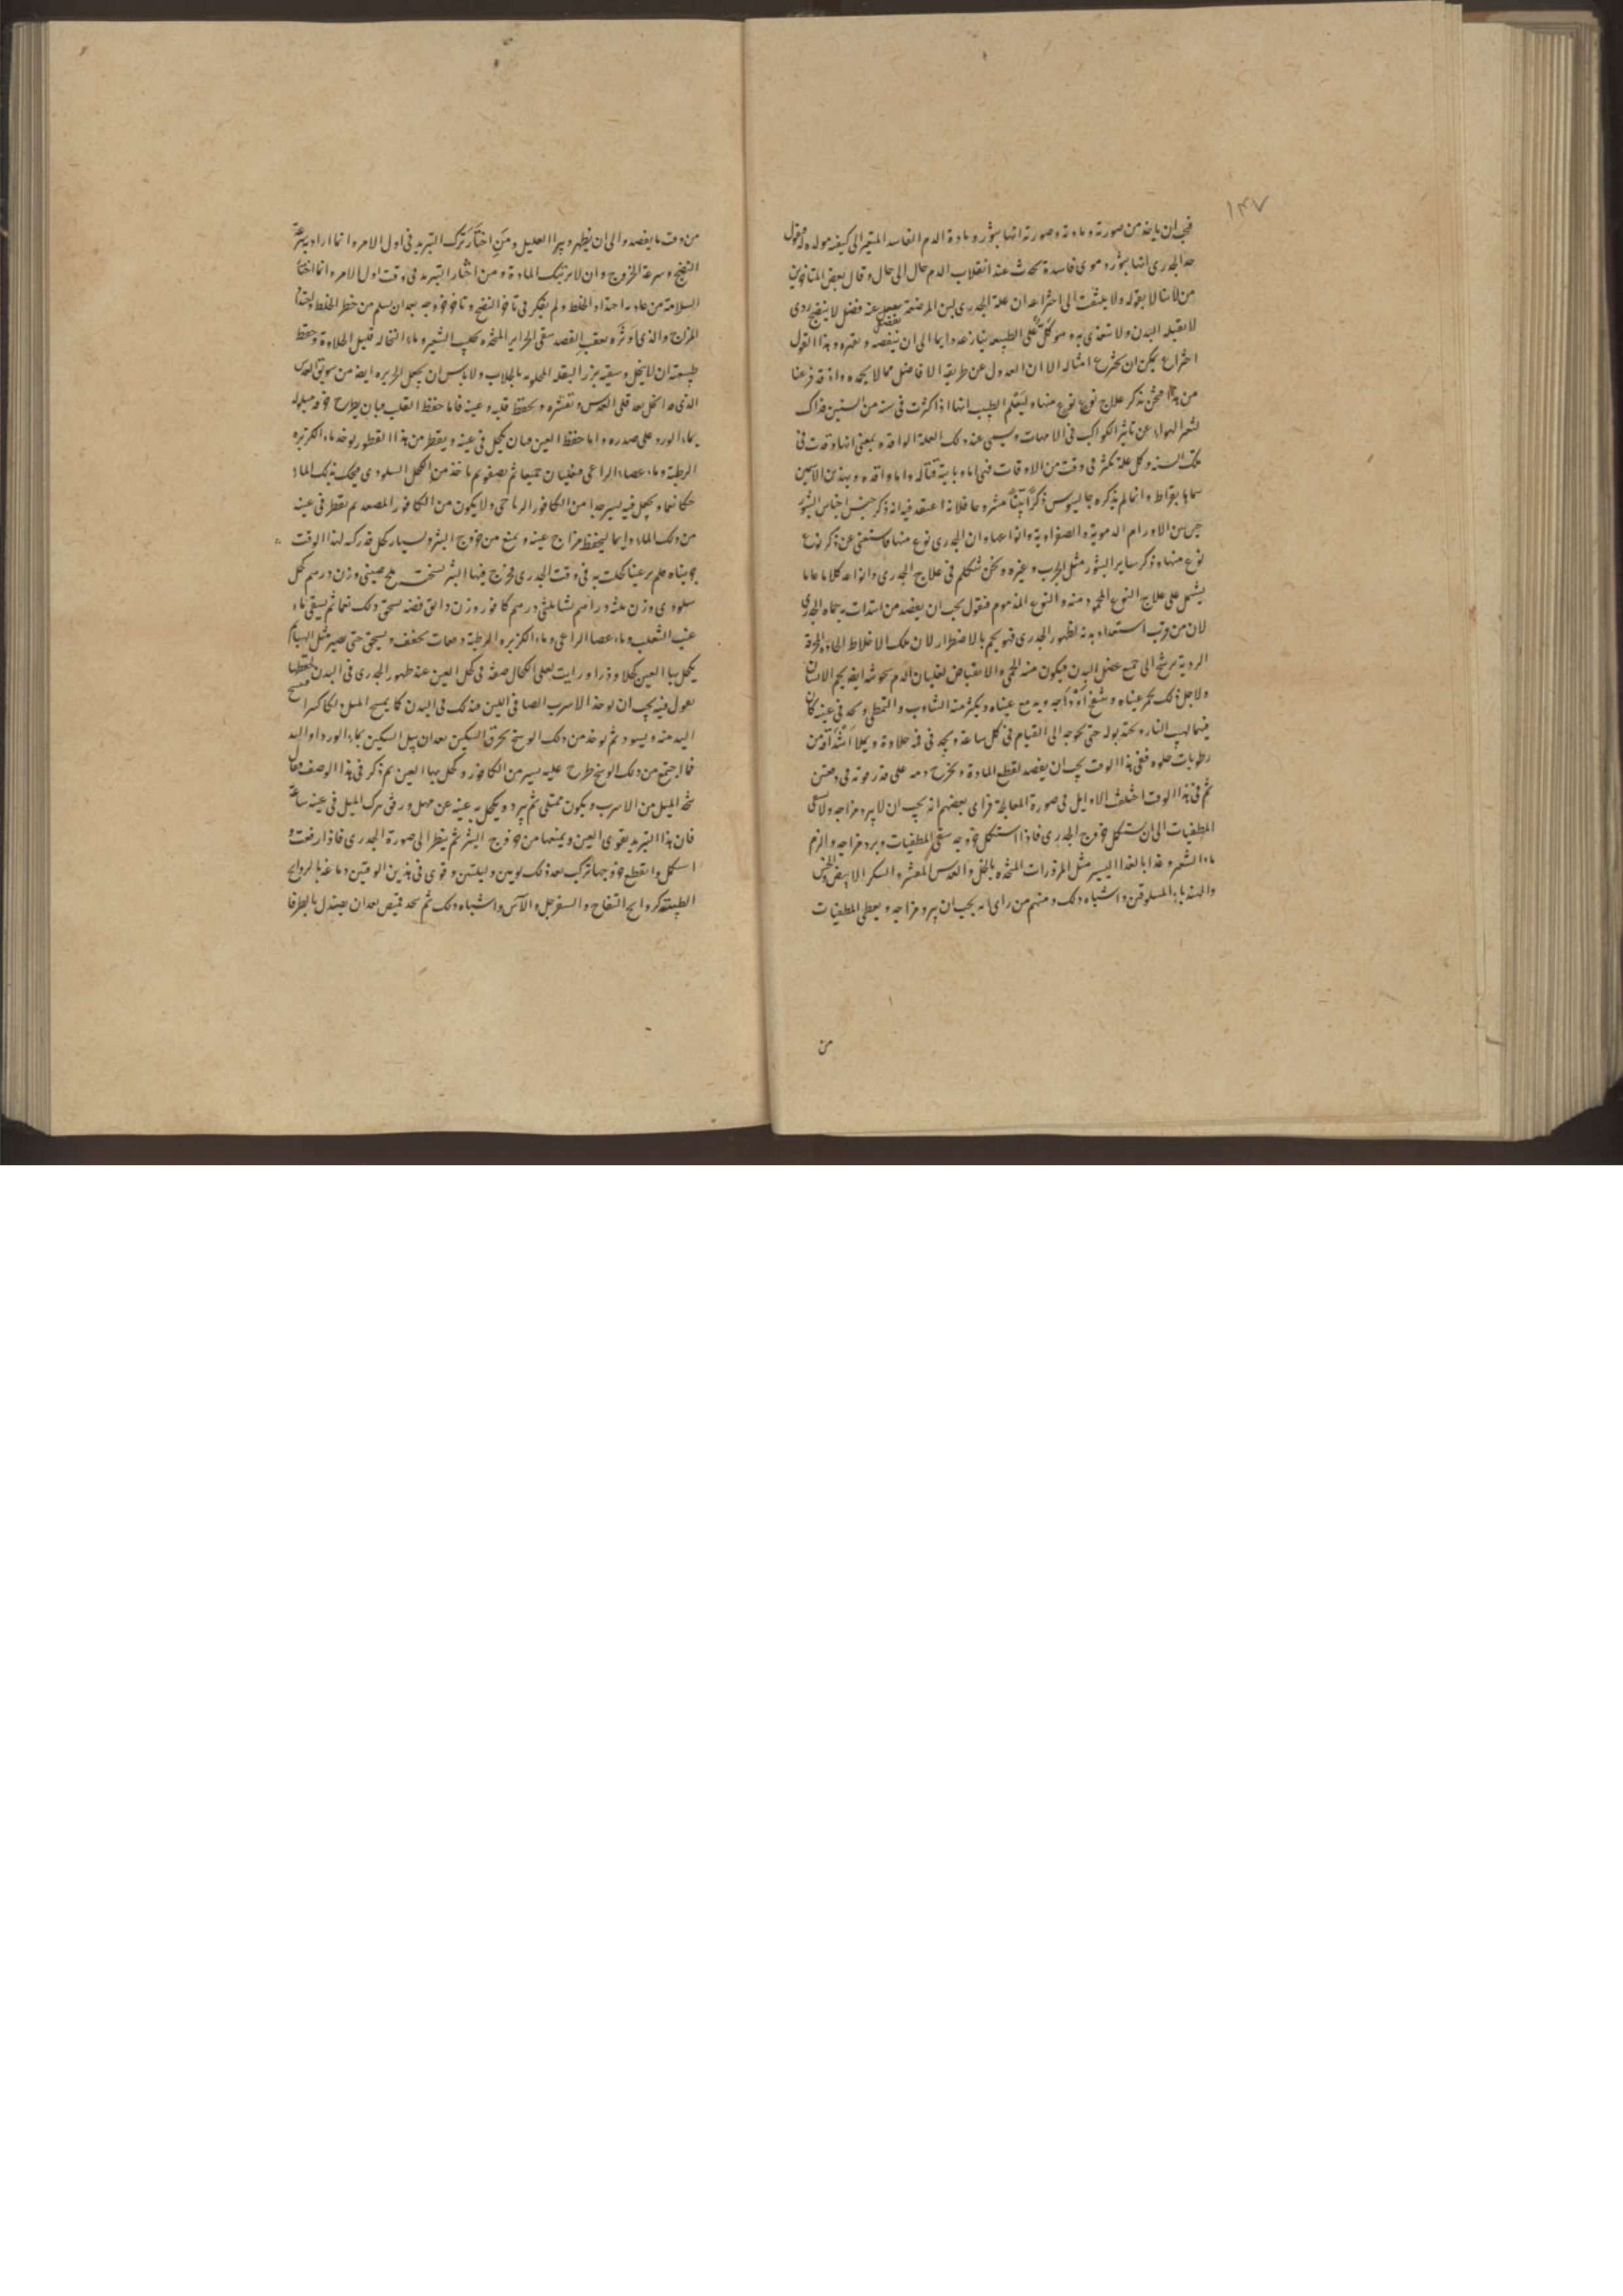 ١٣٧
فيجب ان ياخذ من صورته ومادته وصورته انها بثور ومادة الدم الفاسد المتغير الى كيفية
حد الجدرى انها بثور دموى فاسدة تحدث عند انقلاب الدم حال الى حال وقال بعض المتاخرين
من لا يبالى يقوله ولا يلتفت الى اختراعه ان علة الجدرى لبن المرضعة عنه فضل لا ينضج ردى
لا يقبله البدن ولا يتغذى به وهو كل على الطبيعة ينازعه دايما الى ان ينفضه وهذا القول
اختراع يمكن ان يخترع امثاله الا ان العدول عن طريقه الافاضل مما لا يحمد واذ قد فرغنا
من هذا فنحن نذكر علاج نوع نوع منها وليعلم الطبيب انها اذا كثرت فى سنة من السنين فذاك
لتغير الهواء عن تاثير الكواكب فى الامهات ويسمى عند ذلك العلة الوافدة بمعنى انها وفدت فى
تلك السنة وكل علة تكثر فى وقت من الاوقات فهى اما وبايية قتالة واما وافدة وبهذين الاسمين
سماها بقراط وانما لم يذكره جالينوس ذكرا بينا مشروحا فلانه اعتقد فيه انه ذكر جنس اجناس البثور
من الاورام الدموية والصفراوية وانواعها وان الجدرى نوع منها فاستغنى عن ذكر نوع
نوع منها وذكر ساير البثور مثل الجرب وغيره ونحن نتكلم فى علاج الجدرى وانواعه كلاما عاما
يشتمل على علاج النوع المحمود منه والنوع المذموم فنقول يجب ان يفصد من ابتدات به حماه الجدرى
لان من قرب استعداد بدنه لظهور الجدرى فهو يحم بالاضطرار لان تلك الاخلاط الحارة المحرقة
الردية يرشح الى جميع عضل البدن فيكون منه الحمى والانقباض لغليان الدم
ولاجل ذلك تحمر عيناه وتدمع عيناه ويكثر منه التثاوب والتمطى ويجد فى عينه كان
فيها لهيب النار وحدة بوله حتى يحوجه الى القيام فى كل ساعة ويجد فى فمه حلاوة
رطوبات حلوه ففى هذا الوقت يجب ان يفصد لقطع المادة ويخرج دمه على قدر قوته
ثم فى هذا الوقت اختلف الاوايل فى صورة المعالجة فراى بعضهم انه يجب ان لا يبرد مزاجه ولا يسقى
المطفيات الى ان يستكمل خروج الجدرى فاذا استكمل خروجه سقى المطفيات وبرد مزاجه والزم
ماء الشعير وغذا بالغذا اليسير مثل المزورات المتخذه بالخل والعدس المقشر والسكر الابيض والخس
والهندباء المسلوقين واشباه ذلك ومنهم من راى انه يجب ان يبرد مزاجه ويعطى المطفيات
من
من وقت ما يفصد والى ان يظهر ويبرا العليل ومن اختار ترك التبريد فى اول الامر وانما اراد به سرعة
النضج وسرعة الخروج وان لا يرتبك المادة ومن اختار التبريد فى وقت اول الامر وانما اختار
السلامة من احتداد الخلط ولم يفكر فى تاخر النضج وتاخر خروجه بعد ان يسلم من خطر الخلط
المزاج والذى اوثره بعقب الفصد سقى الحراير المتخذه بحليب الشعير وماء النخالة قليل الحلاوة وحفظ
طبيعته ان لا ينحل وسقيه بزر البقلة المحلوبه بالجلاب ولا باس ان يجعل الحريرة ايضا من سويق العدس
الذى قد اتخذ بعد قلى العدس وتقشيره ويحفظ قلبه وعينه فاما حفظ القلب فبان يطرح خرقة مبلوله
بماء الورد على صدره واما حفظ العين فبان يكحل فى عينه ويقطر من هذا القطور يوخذ ماء الكزبره
الرطبة وماء عصاء الراعى فيغليان جميعا ثم يصفو ثم ياخذ من الكحل فيحك بذلك الماء
حكا ناعما ويجعل فيه يسير جدا من الكافور الرباحى ولا يكون من الكافور المصعد ثم يقطر فى عينه
من ذلك الماء دايما ليحفظ مزاج عينه ويمنع من خروج البثر كحل قد ركب لهذا الوقت
جربناه فلم نر عينا كحلت به فى وقت الجدرى فخرج فيها البثر وزن درهم كحل
وزن ثلثه دراهم نشا ثلثى درهم كافور وزن دانق فضه يسحق ذلك نعما ثم يسقى ماء
عنب الثعلب وماء عصا الراعى وماء الكزبره الرطبة دفعات يجفف ويسحق حتى يصير مثل الهباء
يكحل بها العين كحلا وذرا ورايت لعلى الكحال صفة فى كحل العين عند ظهور الجدرى فى البدن لحفظها
يقول فيه يجب ان يوخذ الاسرب الصافى اللين فيدلك فى اليدين كما يمسح الميل دلكا كثيرا
اليد منه ويسود ثم يوخذ من ذلك الوسخ بحرف السكين بعد ان يبل السكين بماء الورد او اليد
فما اجتمع من ذلك الوسخ طرح عليه يسير من الكافور وكحل بها العين ثم ذكر فى هذا الوصف
الميل من الاسرب ويكون ممتلى ثم يبرد ويكحل به عينه عن مهل ورفق يترك الميل فى عينه ساعة
فان هذا التبريد يقوى العين ويمنعها من خروج البثر ثم ينظر الى صورة الجدرى فاذا ارتفعت و
استكمل وانقطع خروجها ترك بعد ذلك يومين وليلتين وقوى فى هذين الوقتين دماغه بالروايح
الطيبة كروايح التفاح والسفرجل والآس واشباه ذلك ثم